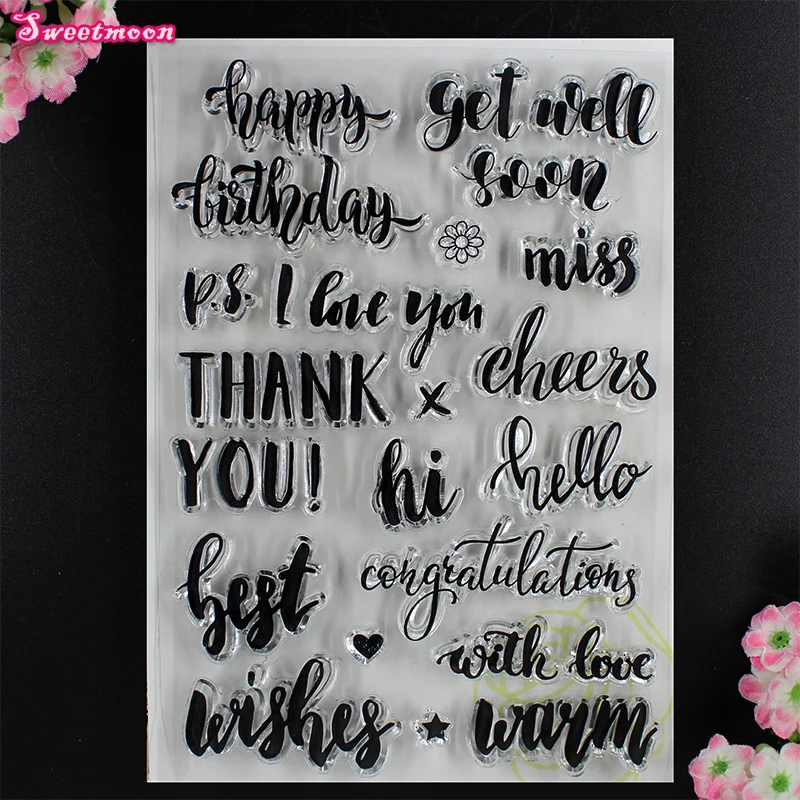 Sweetmoon
happy
birthday
get well
soon
miss
p.s. I love you
THANK
YOU!
x
cheers
hi
hello
best
wishes
congratulations
with love
warm